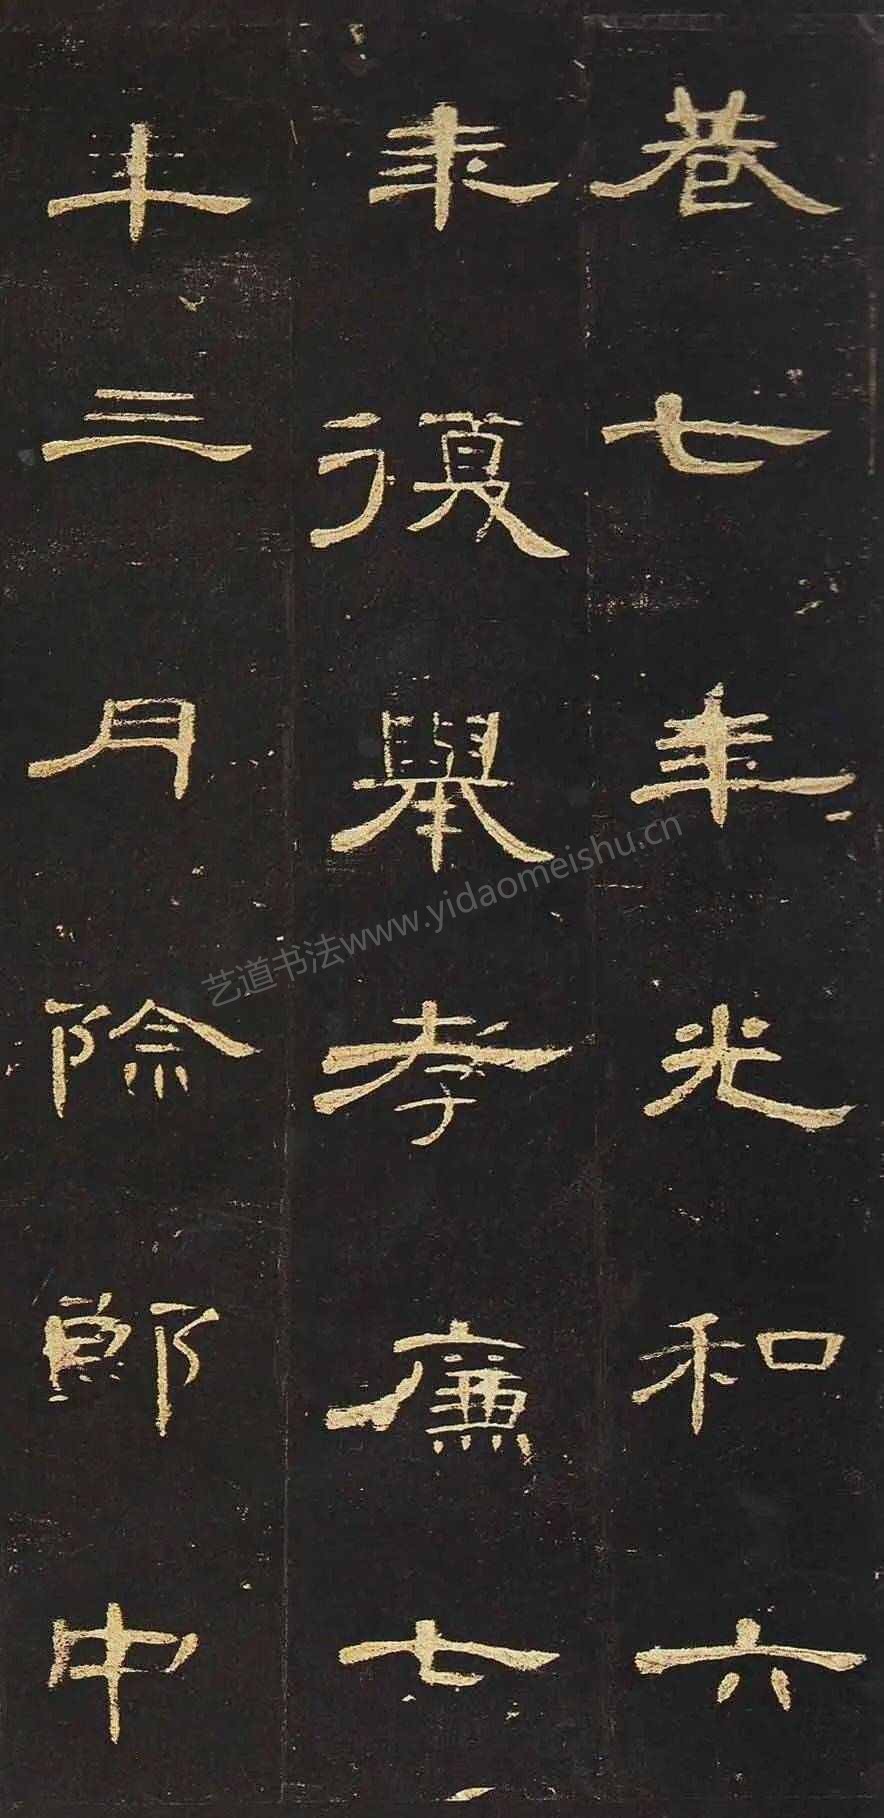 巷七年光和六
年復舉孝廉七
年三月除郎中
艺道书法www.yidaomeishu.cn